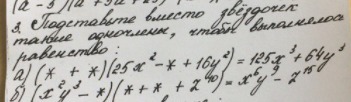 (a - 5)(a² + 5a + 25)
3. Подставьте вместо звёздочек
такие одночлены, чтобы выполнялось
равенство:
а) (* + *)(25x² - * + 16y²) = 125x³ + 64y³
б) (x²y³ - *)(* + * + z¹⁰) = x⁶y⁹ - z¹⁵